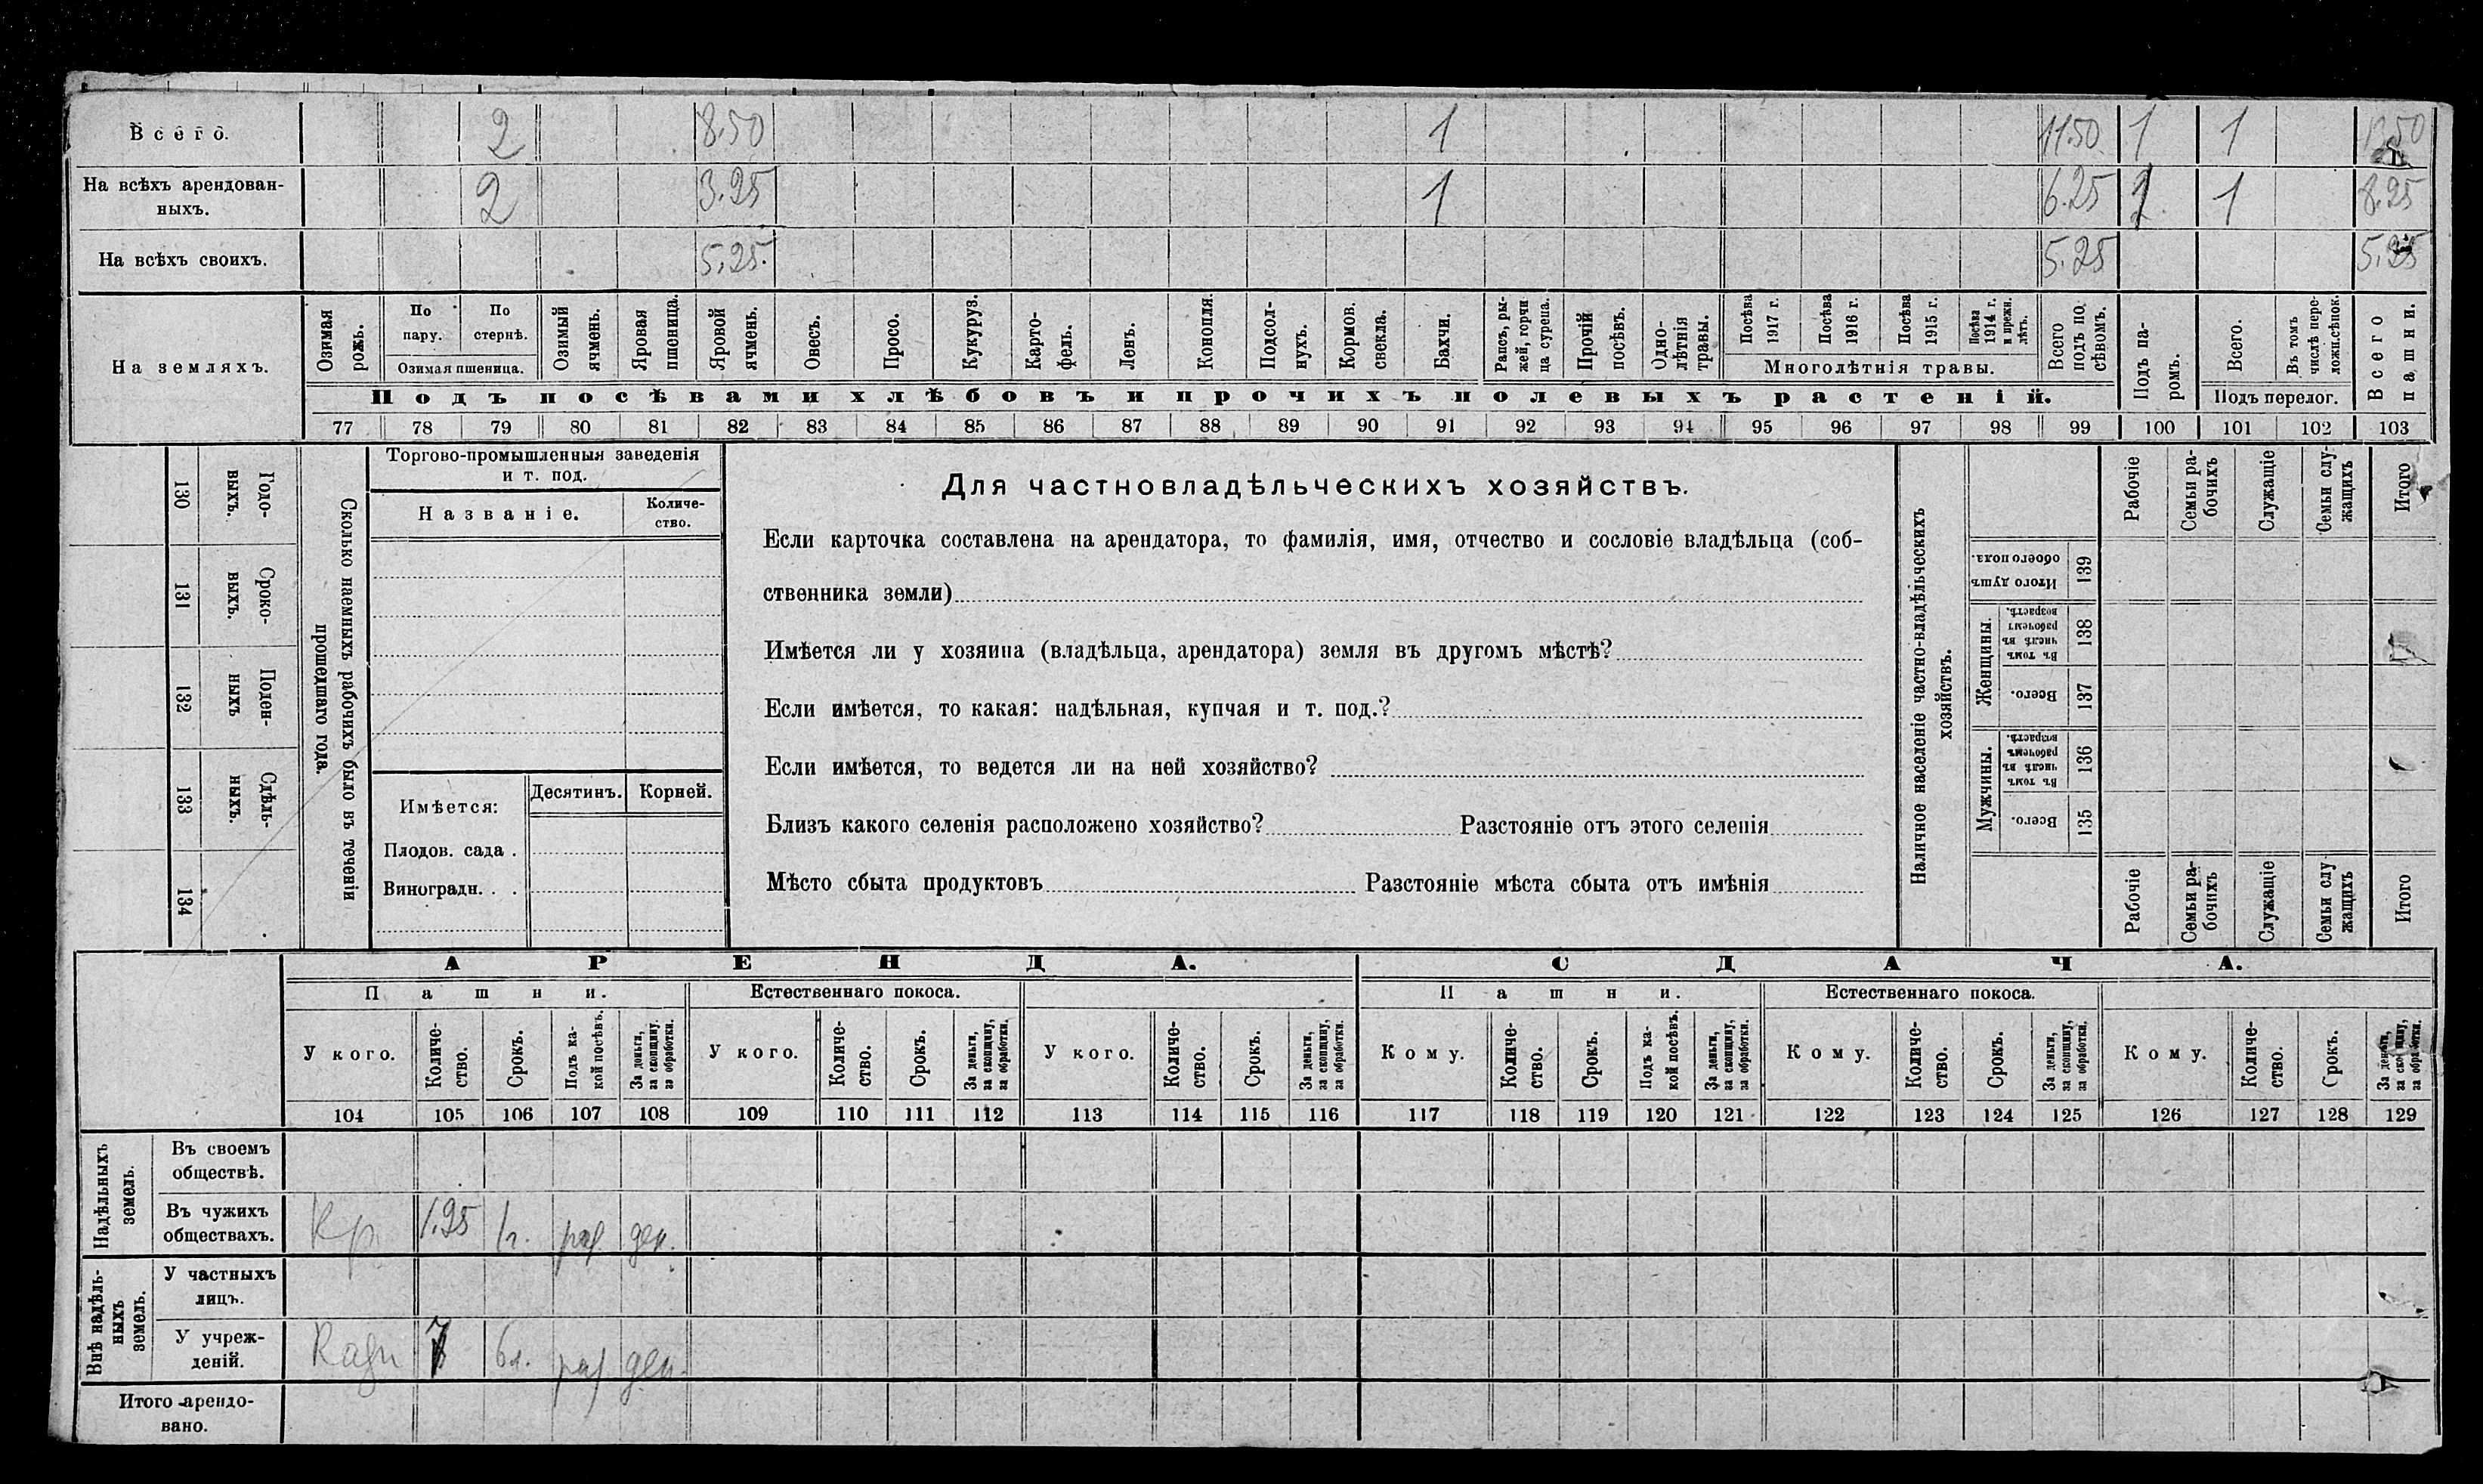 Всего. 2 8.50 1 11.50 1 1
На всѣхъ арендован-
ныхъ. 2 3.25 1 6.25 1 8.25
На всѣхъ своихъ. 5.25 5.25 5.25
На земляхъ.
Озимая
рожь.
По
пару.
По
стернѣ.
Озимая пшеница.
Озимый
ячмень.
Яровая
пшеница.
Яровой
ячмень.
Овесъ.
Просо.
Кукуруз.
Карто-
фель.
Ленъ.
Конопля.
Подсол-
нухъ.
Кормов.
свекла.
Бахчи.
Рапсъ, ры-
жей, горчи
ца сурепа.
Прочій
посѣвъ.
Одно-
лѣтнія
травы.
Посѣва
1917 г.
Посѣва
1916 г.
Посѣва
1915 г.
Посѣва
1914 г.
и прежн.
лѣтъ.
Многолѣтнія травы.
Всего
подъ по
сѣвомъ.
Подъ па-
ромъ.
Всего.
Въ томъ
числѣ пере-
ложн.сѣнок.
Подъ перелог.
Всего
пашни.
Подъ посѣвами хлѣбовъ и прочихъ полевыхъ растеній.
77 78 79 80 81 82 83 84 85 86 87 88 89 90 91 92 93 94 95 96 97 98 99 100 101 102 103
130
Годо-
выхъ.
131
Сроко-
выхъ.
132
Поден-
ныхъ
133
Сдѣль-
ныхъ.
134
Сколько наемныхъ рабочихъ было въ теченіи
прошедшаго года.
Торгово-промышленныя заведенія
и т. под.
Названіе.
Количе-
ство.
Имѣется:
Десятинъ. Корней.
Плодов. сада .
Виноградн. . .
Для частновладѣльческихъ хозяйствъ.
Если карточка составлена на арендатора, то фамилія, имя, отчество и сословіе владѣльца (соб-
ственника земли)
Имѣется ли у хозяина (владѣльца, арендатора) земля въ другомъ мѣстѣ?
Если имѣется, то какая: надѣльная, купчая и т. под.?
Если имѣется, то ведется ли на ней хозяйство?
Близъ какого селенія расположено хозяйство? Разстояніе отъ этого селенія
Мѣсто сбыта продуктовъ Разстояніе мѣста сбыта отъ имѣнія
Наличное населеніе частно-владѣльческихъ
хозяйствъ.
Рабочіе
Семьи ра-
бочихъ
Служащіе
Семьи слу-
жащихъ
Итого
Итого душъ
обоего пола.
139
Женщины.
Въ томъ
числѣ въ
рабочемъ
возрастѣ.
138
Всего.
137
Мужчины.
Въ томъ
числѣ въ
рабочемъ
возрастѣ.
136
Всего.
135
Рабочіе
Семьи ра-
бочихъ
Служащіе
Семьи слу
жащихъ
Итого
АРЕНДА. СДАЧА.
Пашни. Естественнаго покоса. Пашни. Естественнаго покоса.
У кого.
Количе-
ство.
Срокъ.
Подъ ка-
кой посѣвъ.
За деньги,
за скопщину,
за обработки.
У кого.
Количе-
ство.
Срокъ.
За деньги,
за скопщину,
за обработки.
У кого.
Количе-
ство.
Срокъ.
За деньги,
за скопщину,
за обработки.
Кому.
Количе-
ство.
Срокъ.
Подъ ка-
кой посѣвъ.
За деньги,
за скопщину,
за обработки.
Кому.
Количе-
ство.
Срокъ.
За деньги,
за скопщину,
за обработки.
Кому.
Количе-
ство.
Срокъ.
За деньги,
за скопщину,
за обработки.
104 105 106 107 108 109 110 111 112 113 114 115 116 117 118 119 120 121 122 123 124 125 126 127 128 129
Надѣльныхъ
земель.
Въ своемъ
обществѣ.
Въ чужихъ
обществахъ.
Кр. 1.25 1г. ден.
Внѣ надѣль-
ныхъ
земель.
У частныхъ
лицъ.
У учреж-
деній.
7 6л. ден.
Итого арендо-
вано.